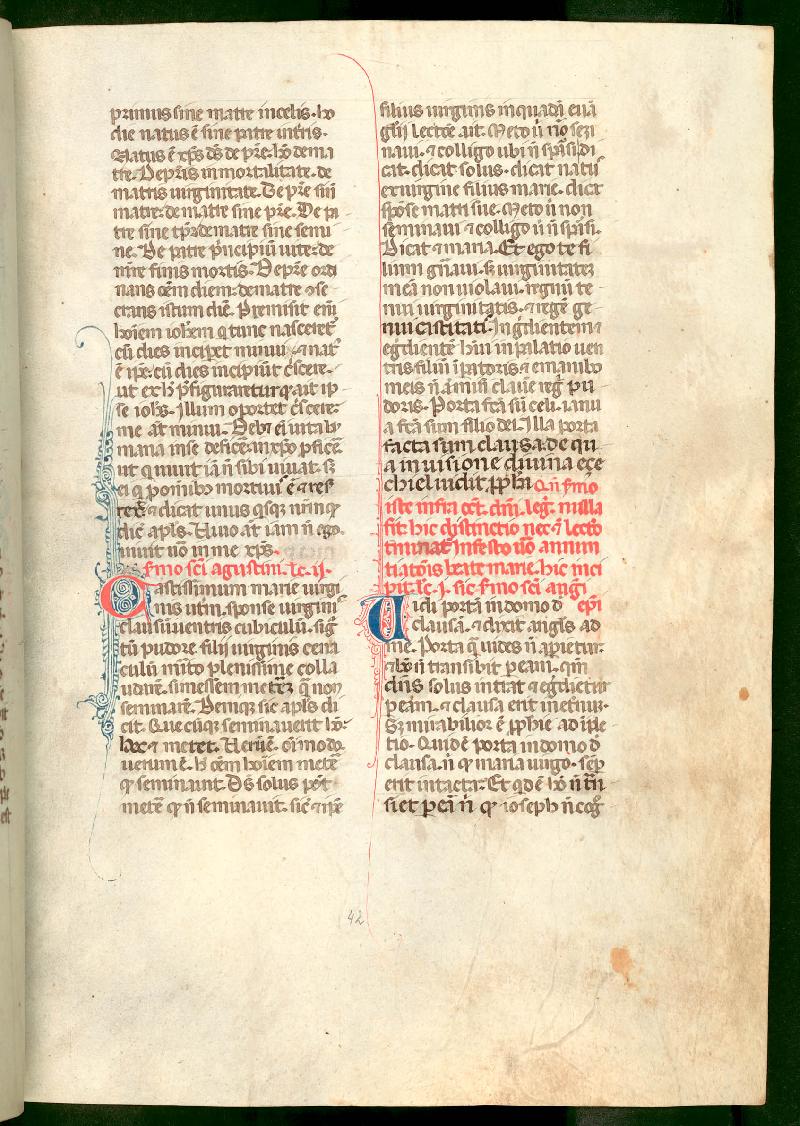 primus sine matre in celis. ho
die natus ē sine patre in tr̄is.
Natus ē xp̄s ds̄ de pr̄e. hō de ma
tre. De pr̄is in mortalitate. de
matris uirginitate. De pr̄e sine
matre: de matre sine pr̄e. De pa
tre sine tp̄r: de matre sine semi
ne. De patre p̄ncipiū uite: de
mr̄e finis mortis. De pr̄e ordi
nans oēm diem: de matre ɔse
crans istum diē. Premisit eni
hoiem ioh̄em q̄ tunc nasceret᷑
cū dies incipet minui. ⁊ nat᷑
ē ip̄e. cū dies incipiūt c̄scere.
ut ex h̄ p̄figuraretur q̄ ait ip
se ioh̄s. Illum oportet c̄scere:
me aūt minui. Debet eī uita hu
mana in se deficē. in xp̄o p̄ficē.
ut q̄ uiuūt iā n̄ sibi uiuāt. sꝫ
ei q̄ p̄ oīnibꝫ mortuus ē ⁊ res
rex̄. ⁊ dicat unus q̄sqꝫ nr̄m q̄
dic̄ apl̄s. Uiuo aūt iam n̄ ego.
uiuit uō in me xp̄s.
sermo sc̄i agustini. lc̄. ij.
Castissimum marie uirgi
nis utm̄. sponse uirgini
clausū uentris cubiculū. sig᷑
tū pudore. filij uirginis cena
culū m̄ito plenissime colla
udem̄. si messem metēꝫ q̄ non
seminarē. Denique sic apl̄s di
cit. Que cūqꝫ seminauerit hō:
hec ⁊ metet. Uerū ē. oi modo
uerum ē. h̄ oēm hoiem metē
q̄ seminaunt. Ds̄ solus pōt
metē q̄ n̄ seminauit. sic̄ ⁊ ip̄e
filius uirginis in quadā euā
glij lectōe ait. Meto ū nō semi
naui. ⁊ colligo ubi n̄ sp̄asi. di
cat. dicat solus. dicat natus
ex uirgine filius marie. dicat
spōse matri sue. Meto ū non
seminaui ⁊ colligo ū n̄ sp̄asi.
Dicat ⁊ maria. Et ego te fi
lium gn̄aui. sꝫ uirginitateꝫ
meā non uiolaui. regnū te
nui uirginitatis. ⁊ regē ge
nui castitatis. Ingr̄dientem ⁊
egr̄dientē h̄ui in palatio uen
tris filiū īpatoris ⁊ e manibꝫ
meis n̄ amisi clauē reḡ pu
doris. Porta fc̄a sū celi. ianu
a fc̄a sum filio dei. Illa porta
facta sum clausa. de qu
a in uisione diuina eçe
chiel uidit. pph̄a Qn̄ s̄mo
iste infra oct. dn̄i. leḡ. nulla
fit. hic distinctio nec ⁊ lectō
tminat᷑. In festo uō annun
tiatōis beate marie. hic inci
pit. lc̄. j. sic. sermo sc̄i augi
Uidi portā in domo d̄ ep̄i
clausā. ⁊ dixit angl̄s ad
me. Porta q̄ uides n̄ apietur.
⁊ hō n̄ transibit p eam. qm̄
dn̄s solus intrat ⁊ egr̄dietur
p eam. ⁊ clausa erit in et̄nū.
Sꝫ mirabilior ē pph̄ie adīple
tio. Quid ē porta in domo d̄
clausa. n̄ q̄ maria uirgo. semp̄
erit intacta. Et q̄d ē hō n̄ tr̄n
siet p eā n̄ q̄ ioseph n̄ cog᷑
42